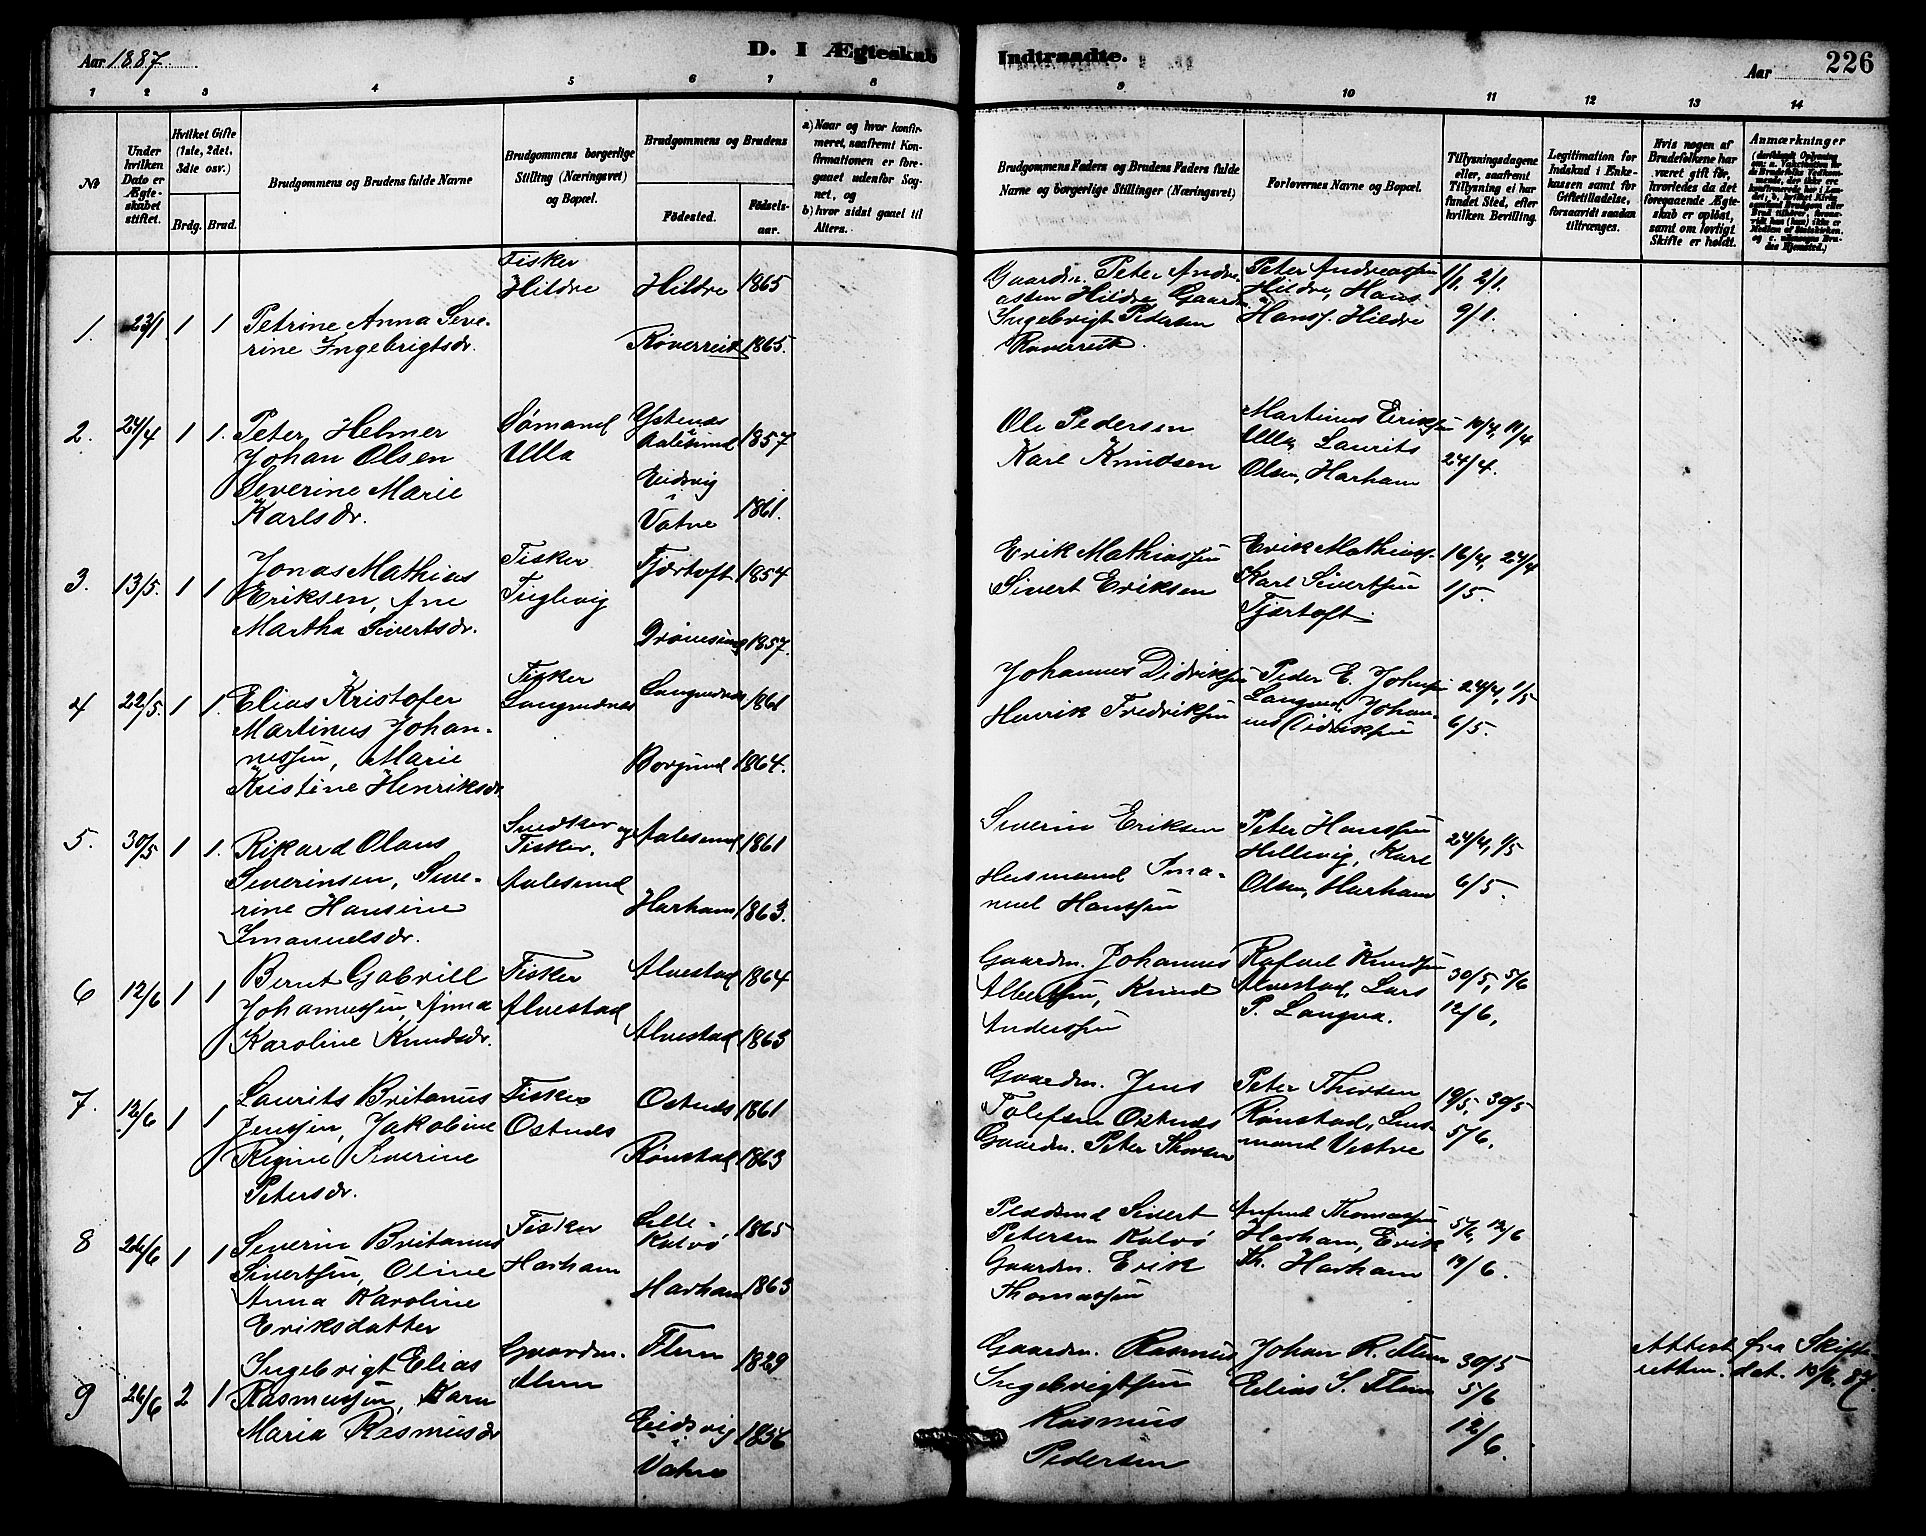 Aar 1887.
D. I Ægteskab Indtraadte.
Aar
226
1 2 3 4 5 6 7 8 9 10 11 12 13 14
No
Under hvilken Dato er Ægteskabet stiftet.
Hvilket Gifte (1ste, 2det, 3die osv.)
Brdg. Brud.
Brudgommens og Brudens fulde Navne
Brudgommens borgerlige Stilling (Næringsvei) og Bopæl.
Brudgommens og Brudens
Fødested.
Fødselsaar.
a) Naar og hvor konfirmeret, saafremt Konfirmationen er foregaaet udenfor Sognet, og
b) hvor sidst gaaet til Alters.
Brudgommens Faders og Brudens Faders fulde Navne og borgerlige Stillinger (Næringsvei)
Forlovernes Navne og Bopæl.
Tillysningsdagene eller, saafremt Tillysning ei har fundet Sted, efter hvilken Bevilling.
Legitimation for Indskud i Enkekassen samt for Giftetilladelse, forsaavidt saadan tiltrænges.
Hvis nogen af Brudefolkene har været gift før, hvorledes da det foregaaende Ægteskab er opløst, samt om lovligt Skifte er holdt.
Anmærkninger
1. 23/1 1 1
Petrine Anna Seve-
rine Ingebrigtsdr.
Fisker
Hildre
Hildre 1865
Roverreit 1865.
Gaardm. Peter Andre-
assen Hildre Gaardm.
Ingebrigt Pedersen
Roverreit
Peter Andreassen
Hildre, Hans
Hanss. Hildre
1/1. 2/1.
9/1.
2. 24/4 1 1.
Peter Helmer
Johan Olsen
Severine Marie
Karlsdr.
Sømand
Ulla
Ystenæs
Aalesund 1857
Eidsvig
i
Vatne 1861.
Ole Pedersen
Karl Knudsen
Martinus Eriksen
Ulla, Laurits
Olsen, Harham
24/4.
3. 13/5. 1 1
Jonas Mathias
Eriksen, Ane
Martha Sivertsdr.
Fisker
Fuglevig
Fjærtoft 1854
1857.
Erik Mathiassen
Sivert Eriksen
Erik Mathiass.
Karl Sivertsen
Fjærtoft.
16/4, 24/4
1/5.
4 22/5. 1 1.
Elias Kristofer
Martinus Johan-
nessen, Marie
Kristine Henriksdr.
Fisker
Longvanæs
1861
Borgund 1864.
Johannes Didriksen
Henrik Fredriksen
Peder E. Johnsen
Johan-
nes Didriksen
24/4, 1/5
6/5.
5. 30/5 1 1.
Rikard Olaus
Severinsen, Seve-
rine Hansine
Imanuelsdr.
Snedker og
Fisker.
Aalesund
Aalesund 1861
Harham 1863.
Severin Eriksen
Husmand Ima-
nuel Hanssen
Peter Hanssen
Hellevig, Karl
Olsen, Harham
24/4, 1/5
6/5.
6 12/6 1 1
Bernt Gabriel
Johannessen, Anna
Karoline Knudsdr.
Fisker
Alvestad
Alvestad 1864
Alvestad 1863
Gaardm. Johannes
Albertsen, Knud
Anderssen
Rafael Knudsen
Alvestad, Lars
P. Longva.
30/5, 5/6
12/6,
7. 12/6 1 1
Laurits Britanus
Jenssen, Jakobine
Regine Severine
Petersdr.
Fisker
Ostnes
Ostnes 1861
Rønstad 1863
Gaardm. Jens
Tolefsen Ostnes
Gaardm. Peter Thorsen
Peter Thorsen
Rønstad, Lens-
mand Vestre
19/5, 30/5
5/6,
8 26/6 1 1
Severin Britanus
Sivertsen, Oline
Anna Karoline
Eriksdatter
Fisker
Harham
Lille-
Kalvø 1865
Harham 1863
Pladsmd Sivert
Petersen Kalvø
Gaardm. Erik
Thomassen
Thomassen
Harham, Erik
Th. Harham
5/6, 12/6
19/6.
9 26/6 2 1
Ingebrigt Elias
Rasmussen, Karn
Maria Rasmusdr
Gaardm.
Flem
Flem 1829
Eidsvig
i
Vatne 1856
Gaardm. Rasmus
Ingebrigtsen
Rasmus
Pedersen
Johan R. Flem
Elias S. Flem
30/5
5/6
12/6
Attest fra Skifte-
retten. dat. 10/6. 87.